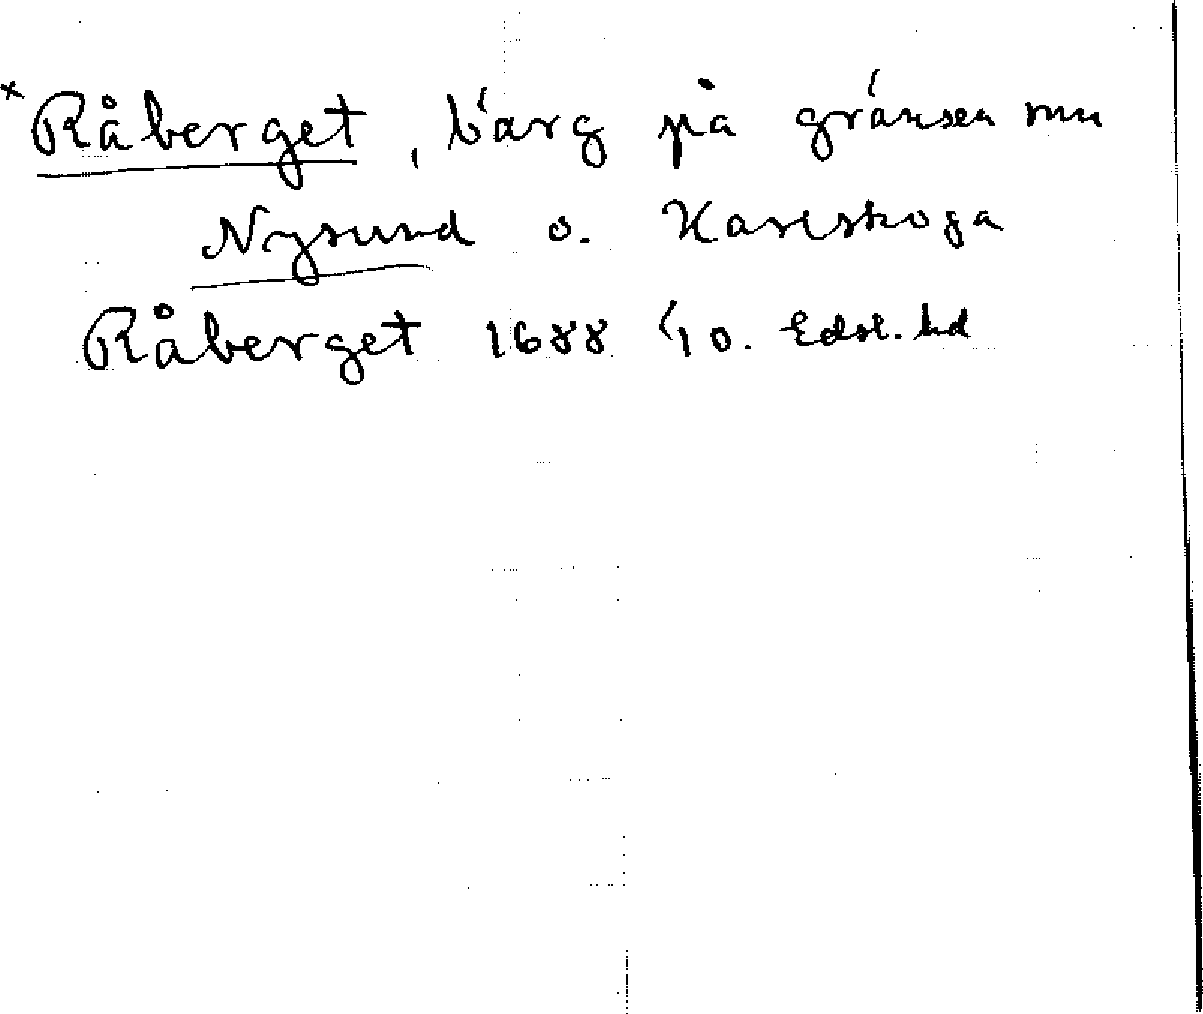 × Råberget, bärg på gränsen mn
Nysund o. Karlskoga
Råberget 1688 40. Edsl. hd